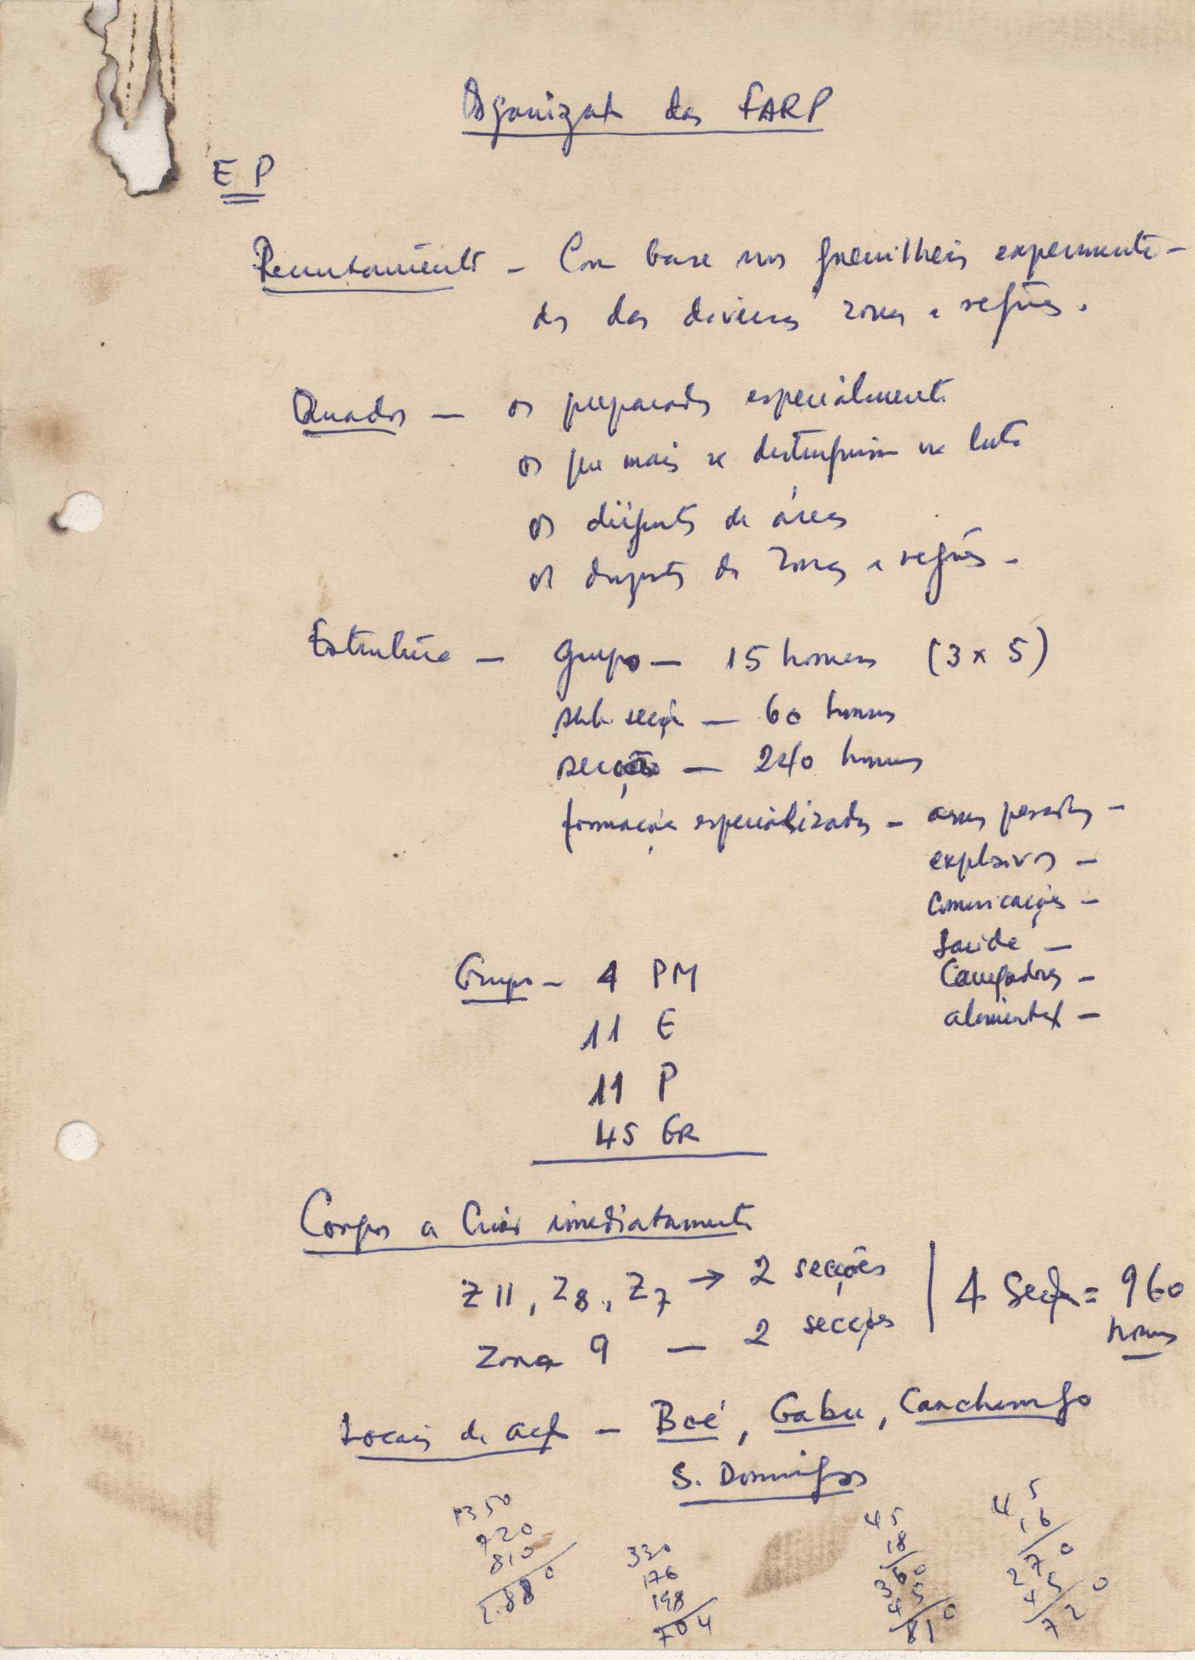 Organizaç das FARP
E P
Recrutamento - Com base nos guerrilheiros experimenta-
dos das diversas zonas e regiões.
Quadros - os preparados especialmente
os que mais se distinguiram na luta
os dirigentes de áreas
os dirigentes de zonas e regiões -
Estrutura - Grupo - 15 homens (3 x 5)
sub. secção - 60 homens
secção - 240 homens
formações especializadas - armas pesadas -
explosivos -
Comunicações -
Saúde -
Grupo - 4 PM
Carregadores -
alimentaç -
11 E
11 P
45 GR
Corpos a Criar imediatamente
Z 11, Z8, Z7 → 2 secções | 4 Secç = 960
Zona 9 - 2 secções
homens
Locais de acç - Boé, Gabu, Canchungo
S. Domingos
1350
720
810
2.880
330
176
198
704
45
18
360
45
810
45
16
270
45
720